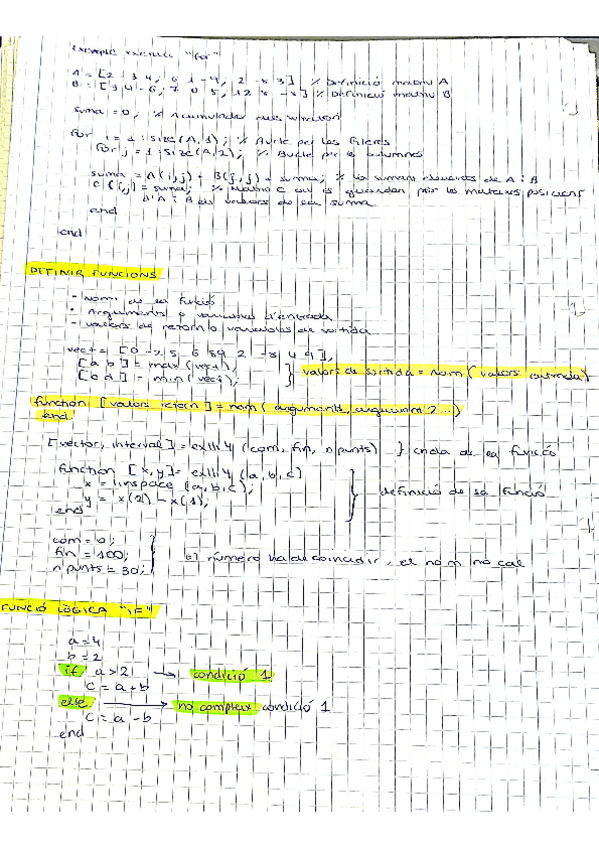 exemple "for"
A = [2 3 4, 1 -4, 2 -8 3] % Definició matriu A
B = [ 3 4 -6, 7 0 5, 12 8 -5] % Definició matriu B
suma = 0; %
for i = 1 : size(A,1); % Bucle per les fileres
for j = 1 : size(A,2); % Bucle per columnes
suma = A(i,j) + B(j,j) + suma; % elements de A i B
C (i,j) = suma; % Matriu C on es guarden per les mateixes posicions
d'A i B els valors de sa suma
end
end
DEFINIR FUNCIONS
- Nom de sa funció
- Arguments o variables d'entrada
- valors de retorn o variables de sortida
vect = [0 -2 5 6 89 2 -8 4 9];
[a b] = max(vect);
[c d] = min(vect);
valors de sortida = nom (valors entrada)
function [valors retorn] = nom (argument1, argument 2 ...)
end
[vector, interval] = exII4 (com, fin, npunts) } crida de sa funció
function [x,y] = exII4 (a,b,c)
x = linspace (a,b,c);
y = x(2) - x(1);
end
definició de sa funció
com = 0;
fin = 100;
npunts = 30;
el número ha de coincidir, el nom no cal
FUNCIÓ LÒGICA "IF"
a = 4
b = 2
if a > 2 → condició 1
c = a + b
else → no compleix condició 1
c = a - b
end